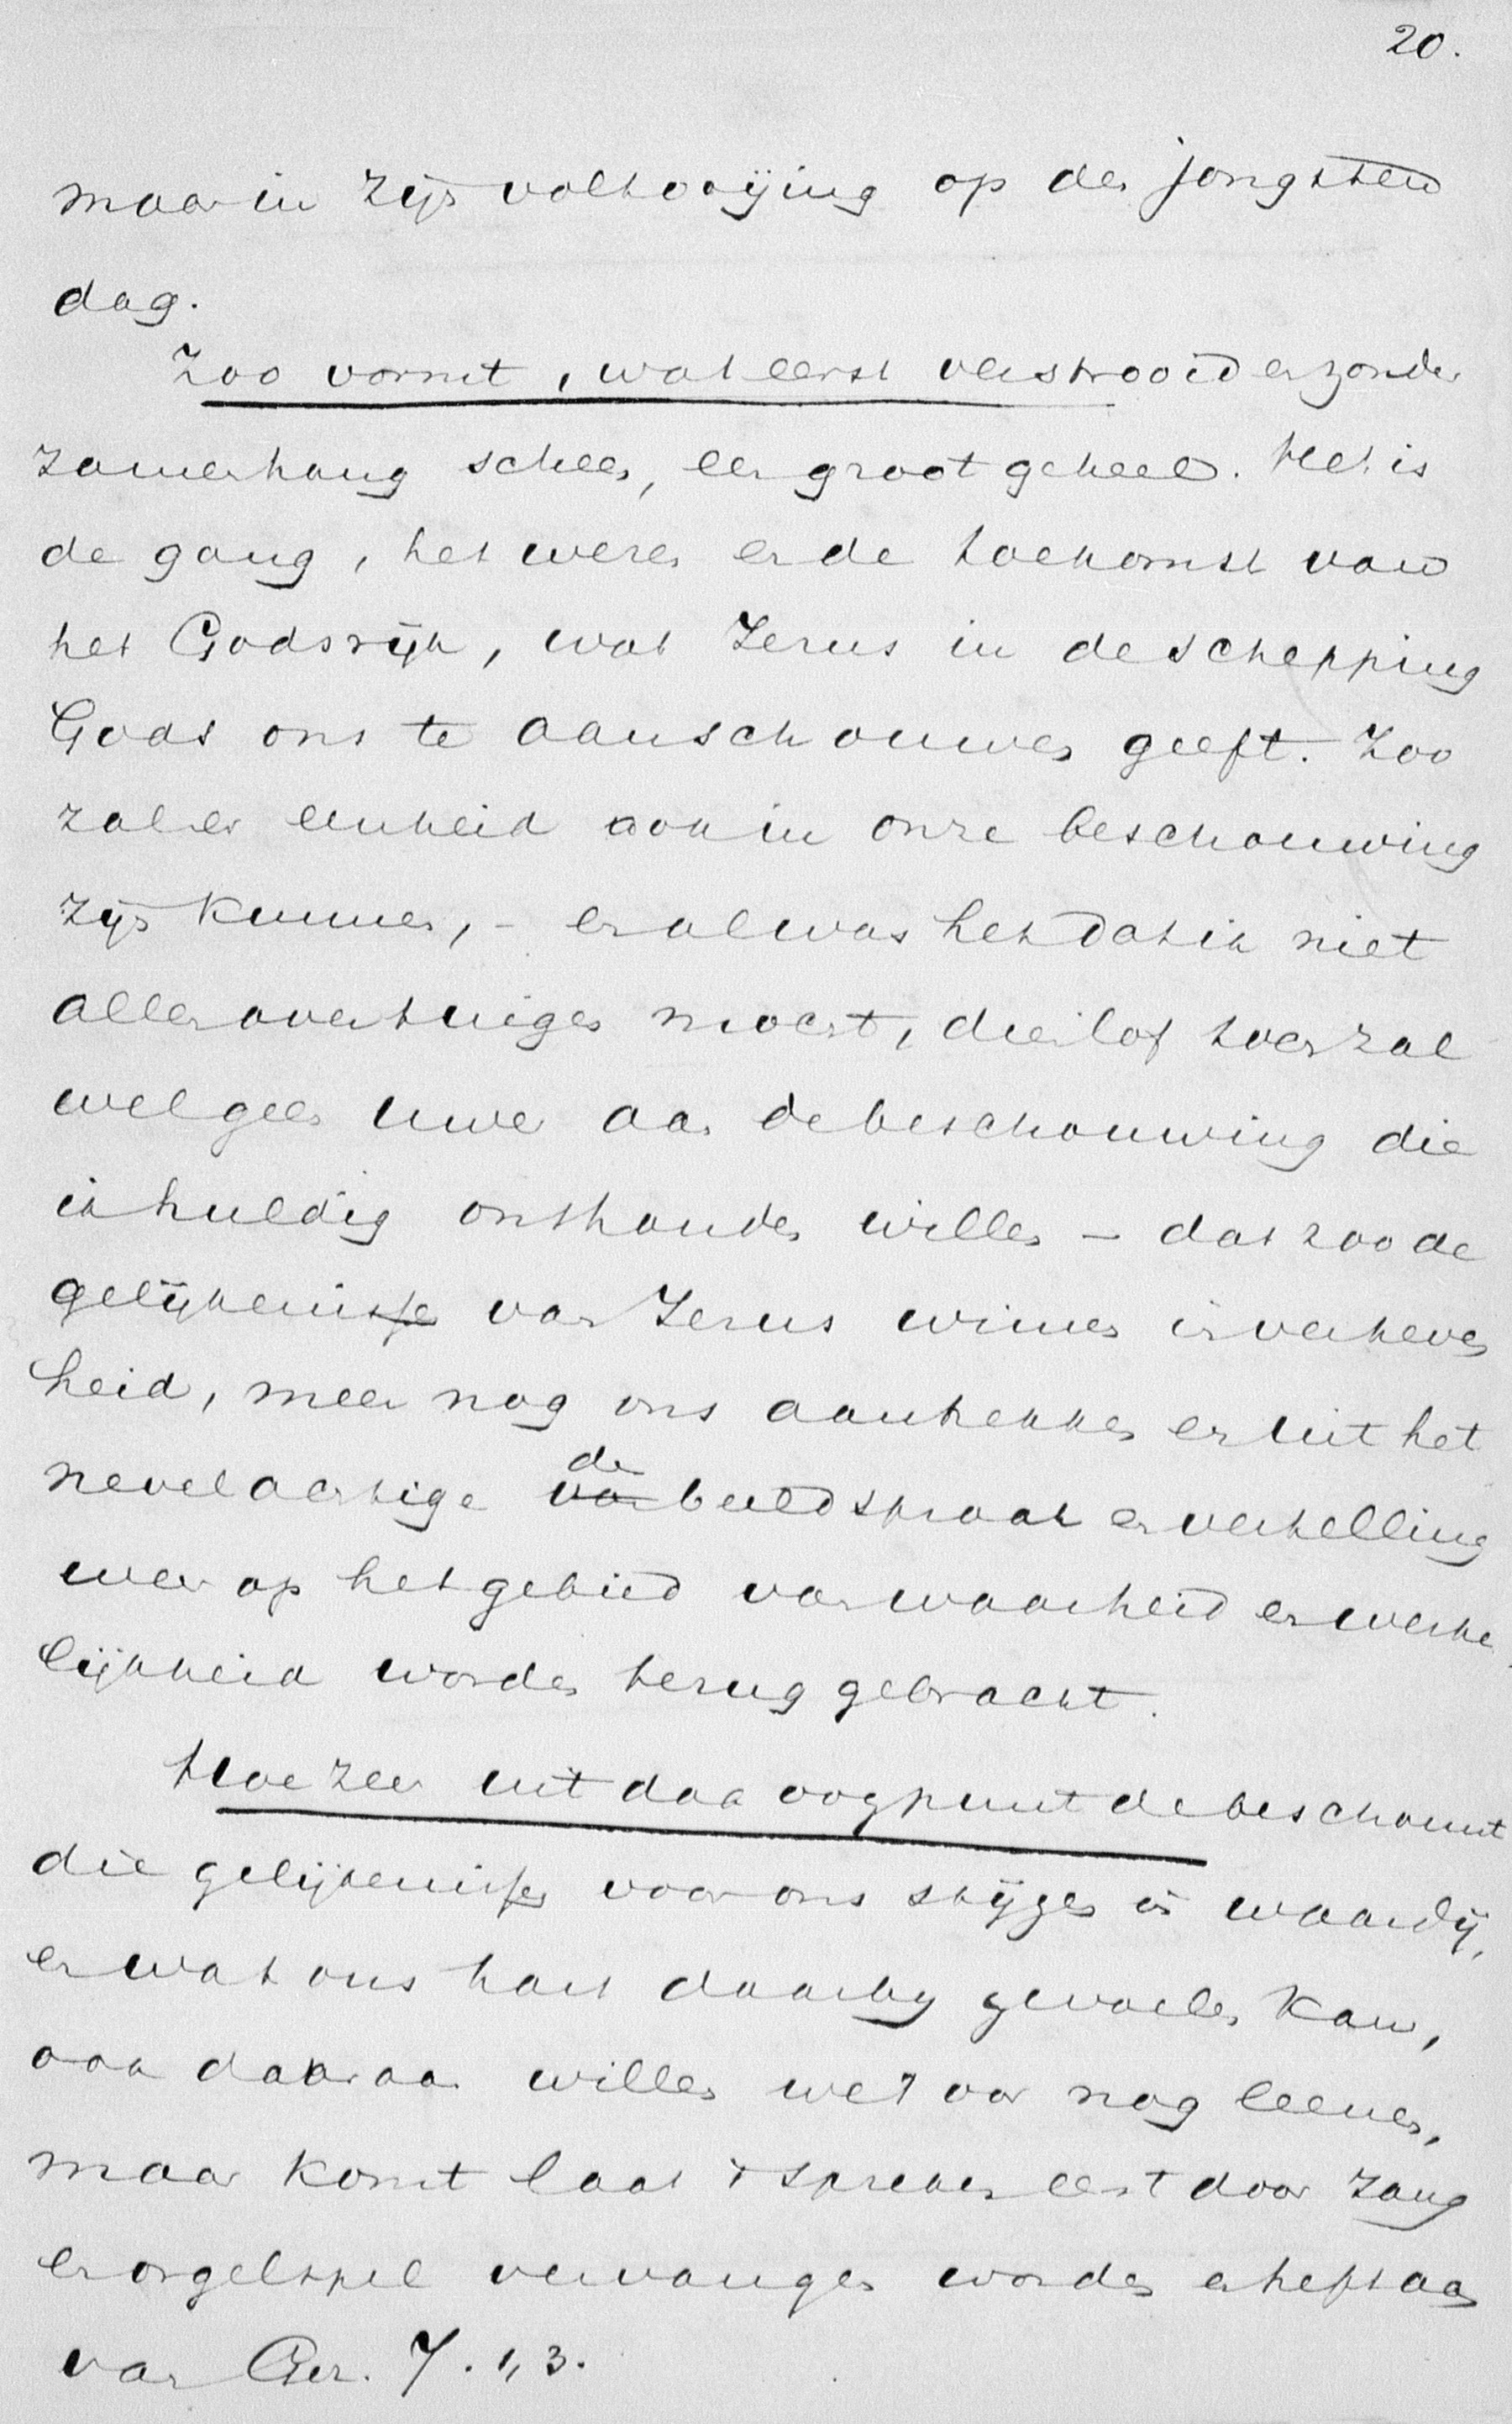 20.
maar in zijn voltooijing op den jongsten
dag.
Zoo vormt, wat eerst verstrooid en zonder
zamenhang scheen, een groot geheel. Het is
de gang, het wezen en de toekomst van
het Godsrijk, wat Jezus in de schepping
Gods ons te aanschouwen geeft. Zoo
zal er eenheid ook in onze beschouwing
zijn kunnen, - en al was het dat ik niet
allen overtuigen mocht, dien lof toch zal
wel geen uwer aan de beschouwing die
ik huldig onthouden willen - dat zoo de
gelijkenissen van Jezus winnen in verheven
heid, meer nog ons aantrekken en uit het
nevelachtige van de beeldspraak en vertelling
weer op het gebied van waarheid en werke
lijkheid worden terug gebracht.
Hoe zeer uit dat oogpunt de beschouwt
die gelijkenissen voor ons stijgen in waardij,
en wat ons hart daarbij gevoelen kan,
ook daaraan willen we 't oor nog leenen,
maar komt laat 't spreken eerst door zang
en orgelspel vervangen worden en heft aan
van Gez. 7. 1, 3.